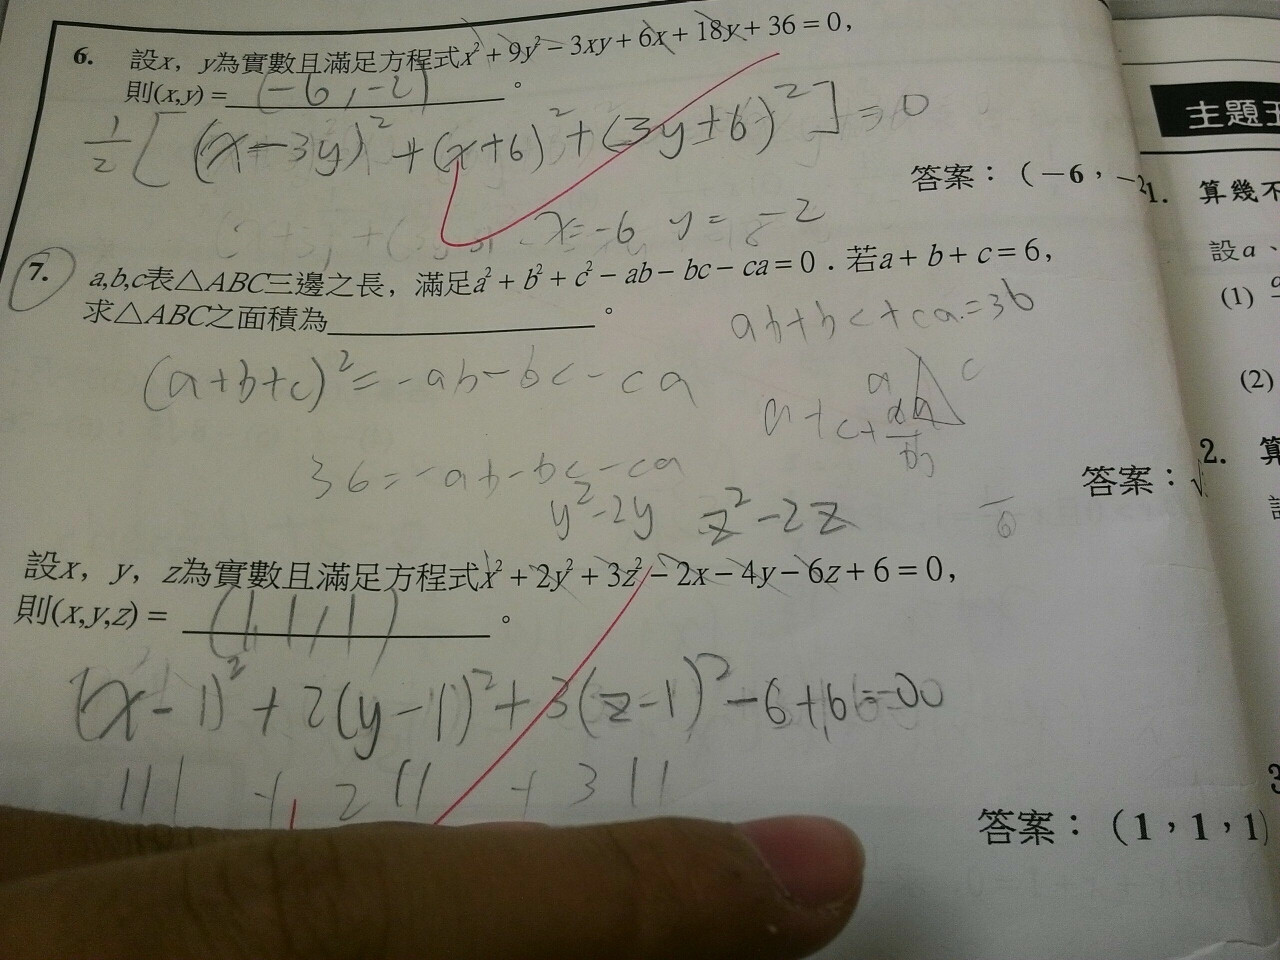 6. 設x，y為實數且滿足方程式x²+9y²−3xy+6x+18y+36=0，
則(x,y)= (-6,-2) 。
1/2[(x-3y)²+(x+6)²+(3y+6)²]=0
答案：(−6，−2
x=-6 y=-2
7. a,b,c表△ABC三邊之長，滿足a²+b²+c²−ab−bc−ca=0．若a+b+c=6，
求△ABC之面積為 。
ab+bc+ca=36
(a+b+c)²=-ab-bc-ca
a c
a+c+
36=-ab-bc-ca
答案：√
y²-2y z²-2z
設x，y，z為實數且滿足方程式x²+2y²+3z²−2x−4y−6z+6=0，
則(x,y,z)= (1,1,1) 。
(x-1)²+2(y-1)²+3(z-1)²-6+6=0
答案：(1，1，1)
主題
1. 算幾不
設a、
(1)
(2)
2. 算
3